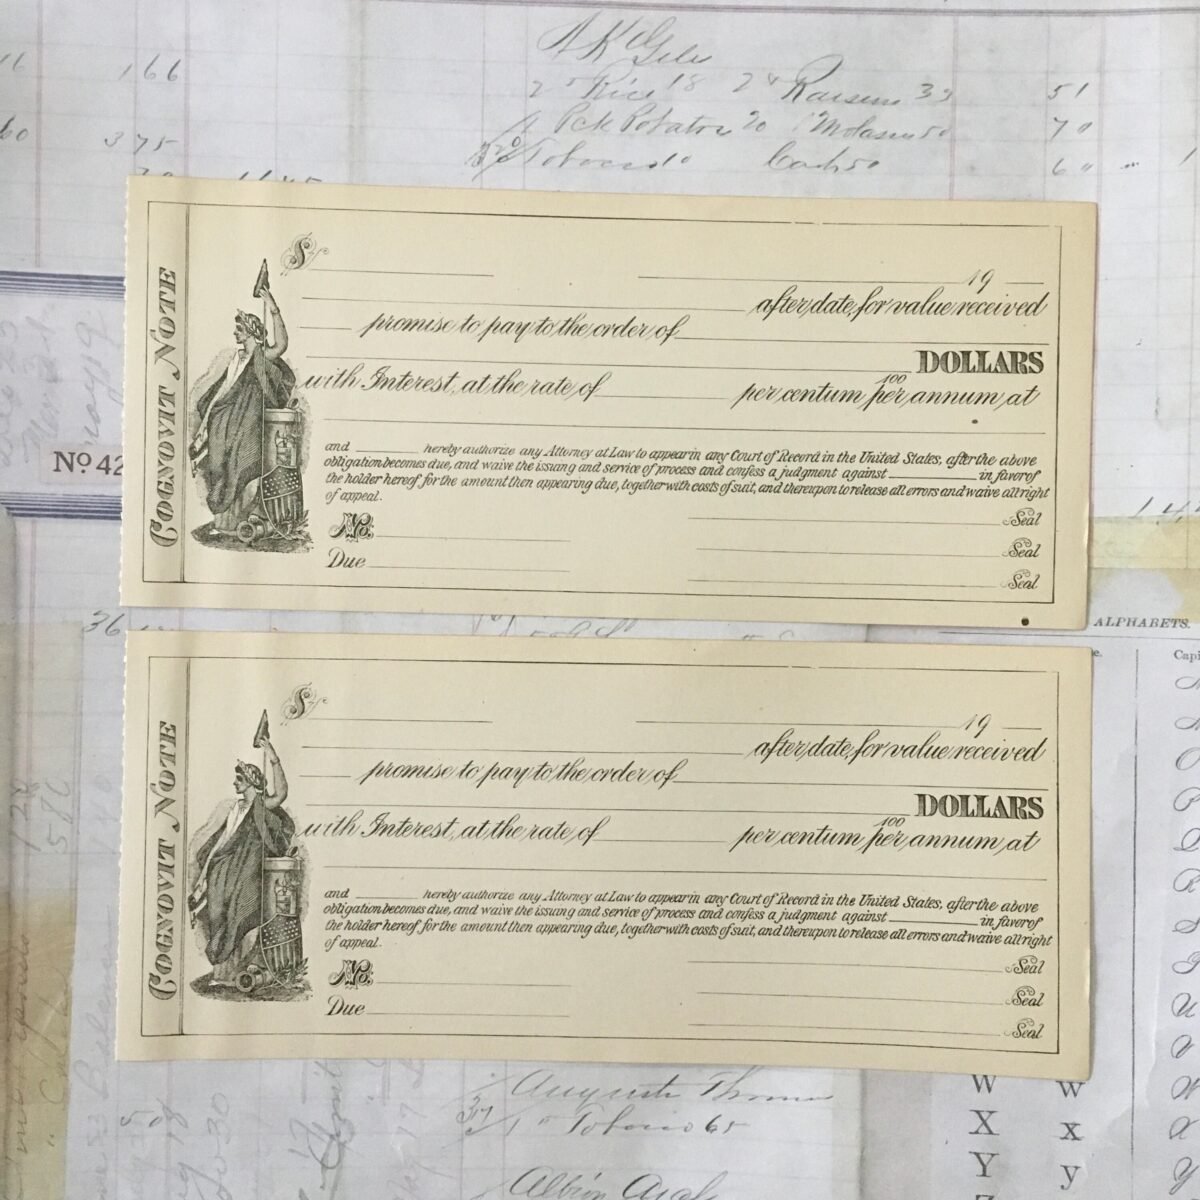 166
375
2 Rice 18 2 Raisens 33 51
Pck Potatos 20 1 Molases 50 70
Tobacco 10 Cash 50 60
No 42
COGNOVIT NOTE
$
19
after date, for value received
promise to pay to the order of
DOLLARS
100
with Interest, at the rate of per centum per annum, at
and hereby authorize any Attorney at Law to appear in any Court of Record in the United States, after the above
obligation becomes due, and waive the issuing and service of process and confess a judgment against in favor of
the holder hereof for the amount then appearing due, together with costs of suit, and thereupon to release all errors and waive all right
of appeal.
No. Seal
Seal
Due
Seal
36
ALPHABETS.
COGNOVIT NOTE
$
19
after date, for value received
promise to pay to the order of
DOLLARS
100
with Interest, at the rate of per centum per annum, at
and hereby authorize any Attorney at Law to appear in any Court of Record in the United States, after the above
obligation becomes due, and waive the issuing and service of process and confess a judgment against in favor of
the holder hereof for the amount then appearing due, together with costs of suit, and thereupon to release all errors and waive all right
of appeal.
No. Seal
Seal
Due
Seal
W w
Augusta Thomas
Tobacco 65
X x
Y y
Albion